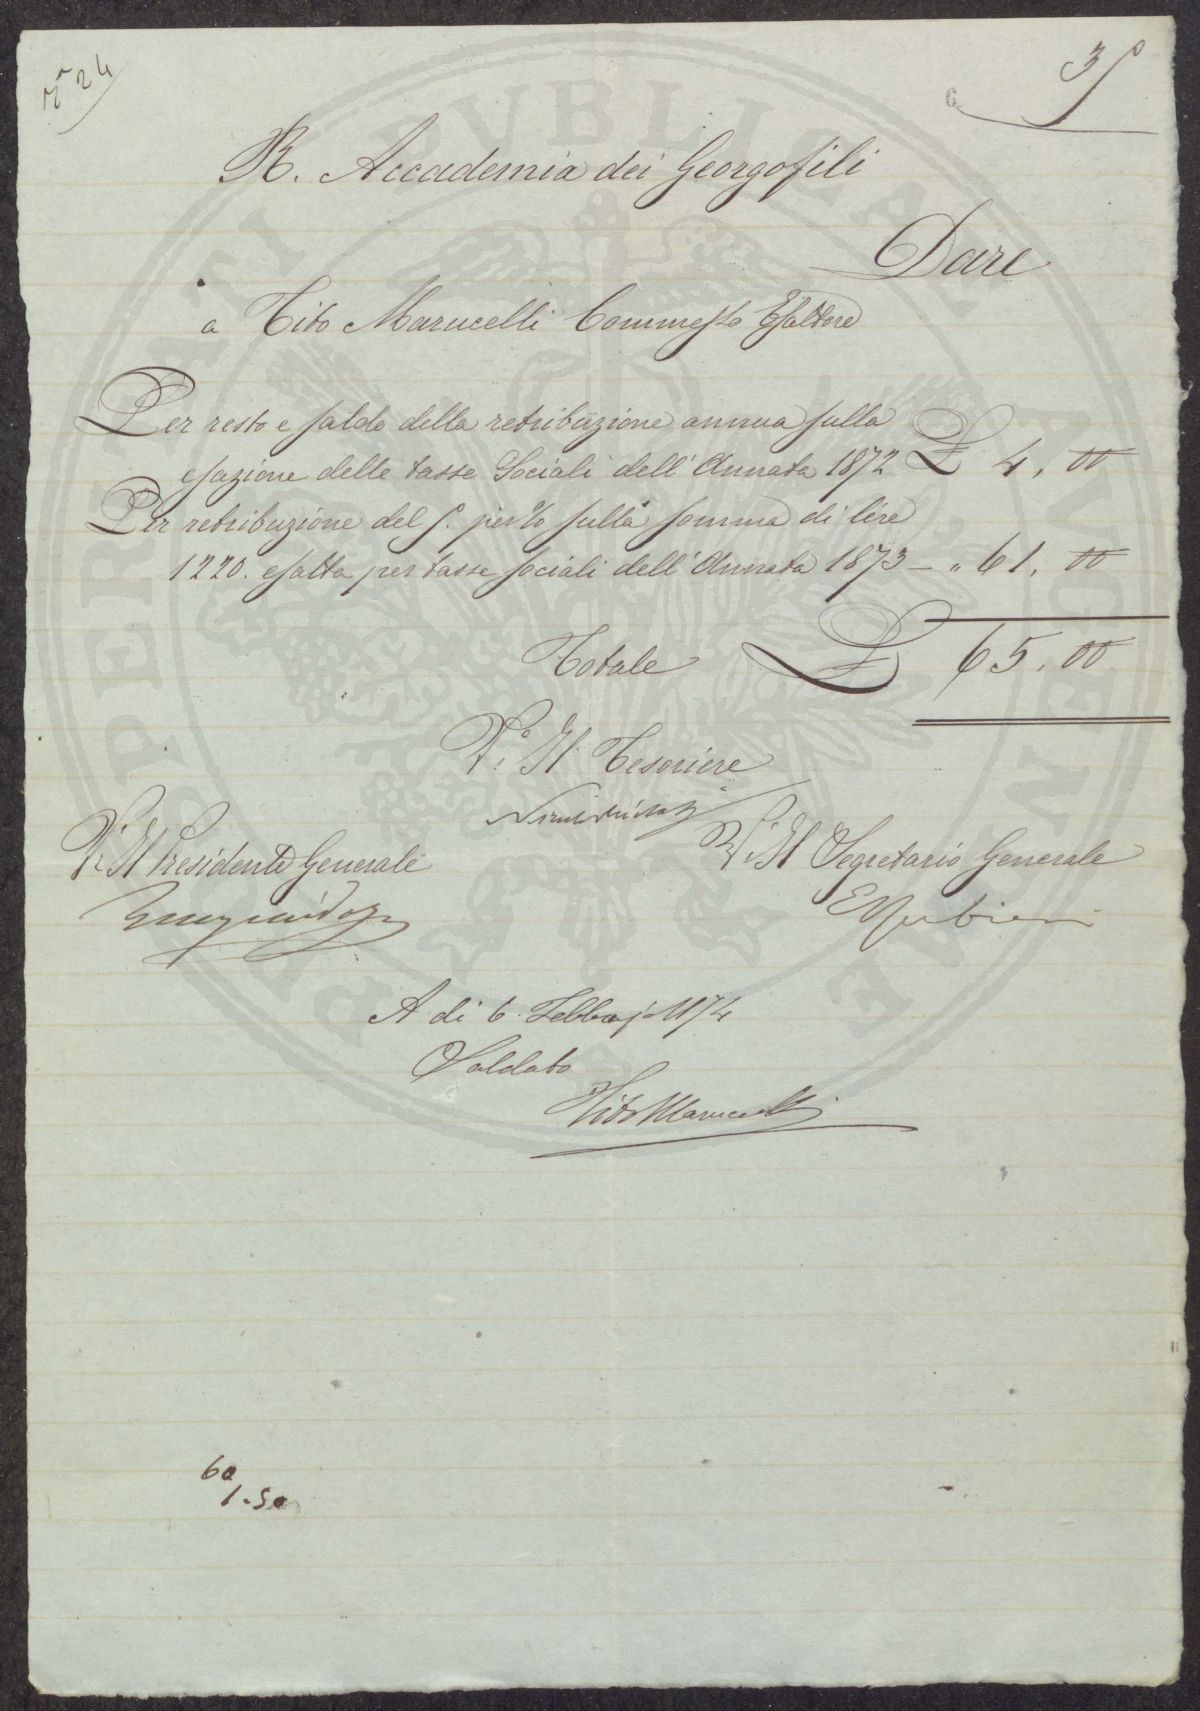 N° 24
35
6
R. Accademia dei Georgofili
Dare
a Tito Marucelli Commesso Esattore
Per resto e saldo della retribuzione annua sulla
esazione delle tasse Sociali dell'Annata 1872 £ 4,00
Per retribuzione del 5. per % sulla somma di lire
1220. esatta per tasse sociali dell'Annata 1873 – " 61,00
Totale £ 65,00
V.° Il Tesoriere
V.° Il Presidente Generale
V.° Il Segretario Generale
E Rubieri
A dì 6. Febbrajo 1874
Saldato
Tito Marucelli
60
1.50
PUBLICAE
PROSPERITATI
AUGENDAE